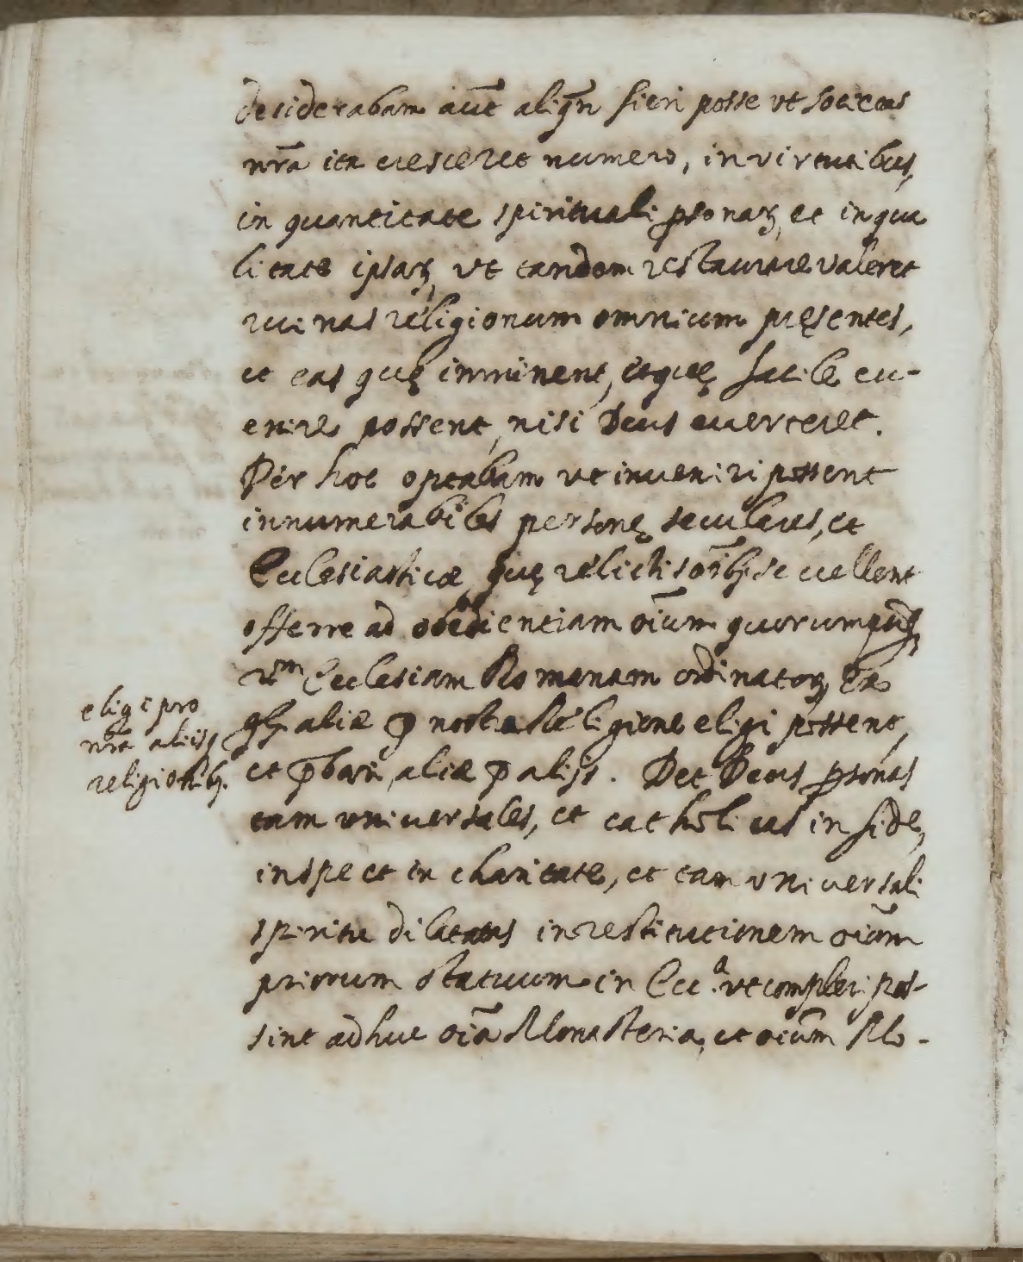 desiderabam aũt aliqñ fieri posse vt societas
nr̃a ita cresceret numero, in virtutibus,
in quantitate spirituali ꝑsonaꝝ, et in qua
litate ipsaꝝ, vt tandem restaurare valeret
ruinas religionum omnium pręsentes,
et eas quę imminent, etquę facile eu-
enire possent, nisi Deus auerteret.
Per hoc optabam vt inueniri possent
innumerabiles personę seculares, et
Ecclesiasticæ, quę relictis oĩbꝫ se vellent
offerre ad obedientiam oĩum quorumcunqꝫ
Ecclesiam Romanam ordinatoꝝ, Ex
qbꝫ aliæ ꝓ nostra Religione eligi possent,
et ꝓbari, aliæ ꝓ alijs. Det Deus ꝑsonas
tam vniuersales, et catholicas in fide,
in spe et in charitate, et tam vniuersali
spiritu dilatatas in restitutionem oĩum
priorum statuum in Eccᵃ. vt compleri pos-
sint adhuc oĩa Monasteria, et oĩum Mo-
eligi pro
nr̃a alijs
religionibꝫ.